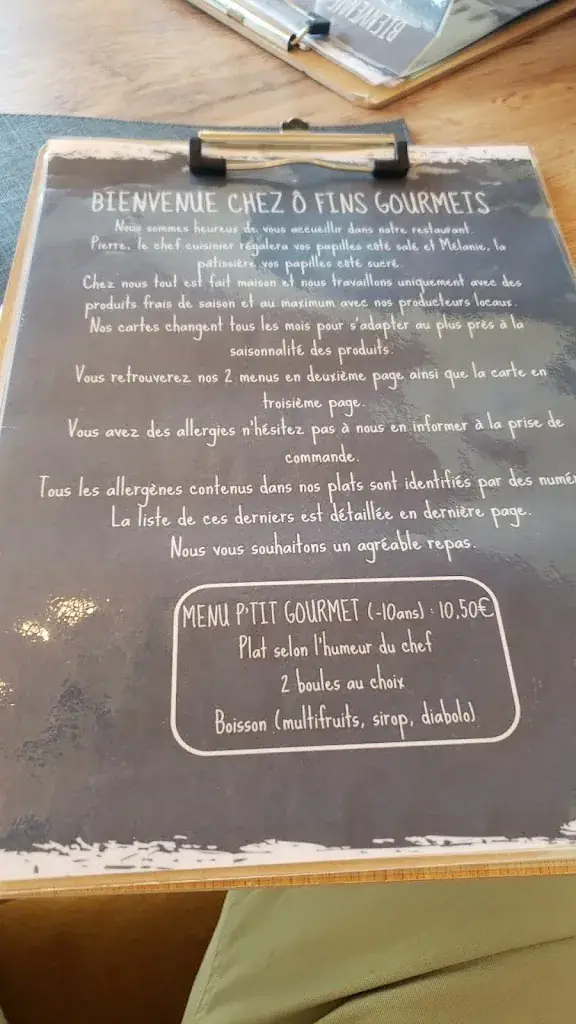 BIENVENUE
BIENVENUE CHEZ Ô FINS GOURMETS
Nous sommes heureux de vous accueillir dans notre restaurant.
Pierre, le chef cuisinier régalera vos papilles côté salé et Mélanie, la
pâtissière vos papilles côté sucré.
Chez nous tout est fait maison et nous travaillons uniquement avec des
produits frais de saison et au maximum avec nos producteurs locaux.
Nos cartes changent tous les mois pour s'adapter au plus près à la
saisonnalité des produits.
Vous retrouverez nos 2 menus en deuxième page ainsi que la carte en
troisième page.
Vous avez des allergies n'hésitez pas à nous en informer à la prise de
commande.
Tous les allergènes contenus dans nos plats sont identifiés par des numér
La liste de ces derniers est détaillée en dernière page.
Nous vous souhaitons un agréable repas.
MENU P'TIT GOURMET (-10ans) : 10,50€
Plat selon l'humeur du chef
2 boules au choix
Boisson (multifruits, sirop, diabolo)